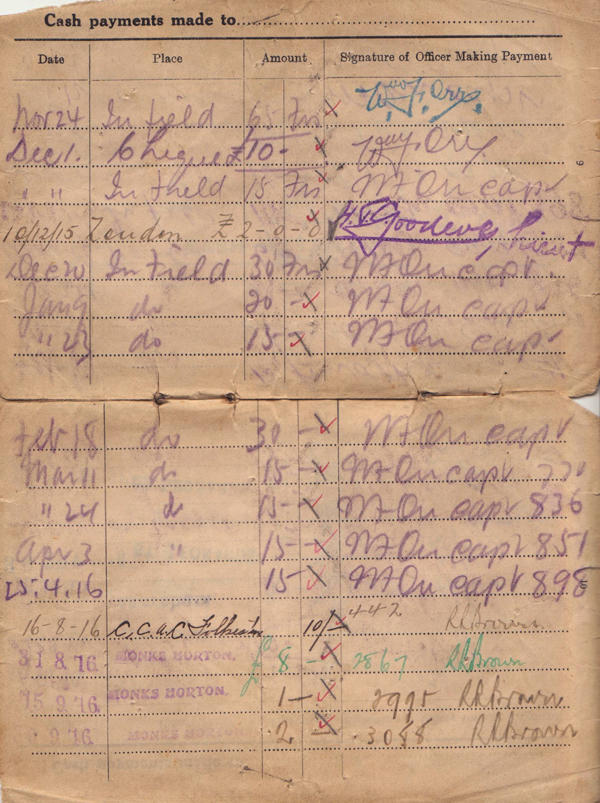 Cash payments made to
Date Place Amount Signature of Officer Making Payment
Nov 24 In field 65 Frs
Dec 1. Cheque £10-
" " In field 15 Frs capt
10/12/15 London £2-0-0 H. Lieut
Dec 20 In Field 30 Frs capt.
Jan 9 do 20 - capt
" 23 do 15 - capt
6
Feb 18 do 30 - capt
Mar 11 do 15 - capt
" 24 do 15 - capt 836
Apr 3 " 15 - capt 851
25.4.16 15 capt 898
16-8-16 C.C.A.C. Folkestone 10/- 442 R.L. Brown
31 8 16 MONKS HORTON. £ 8 - 2867 R.L. Brown
15 9 16 MONKS HORTON. 1 - 2995 R.L. Brown
9 16 MONKS HORTON 2 3088 R.L. Brown